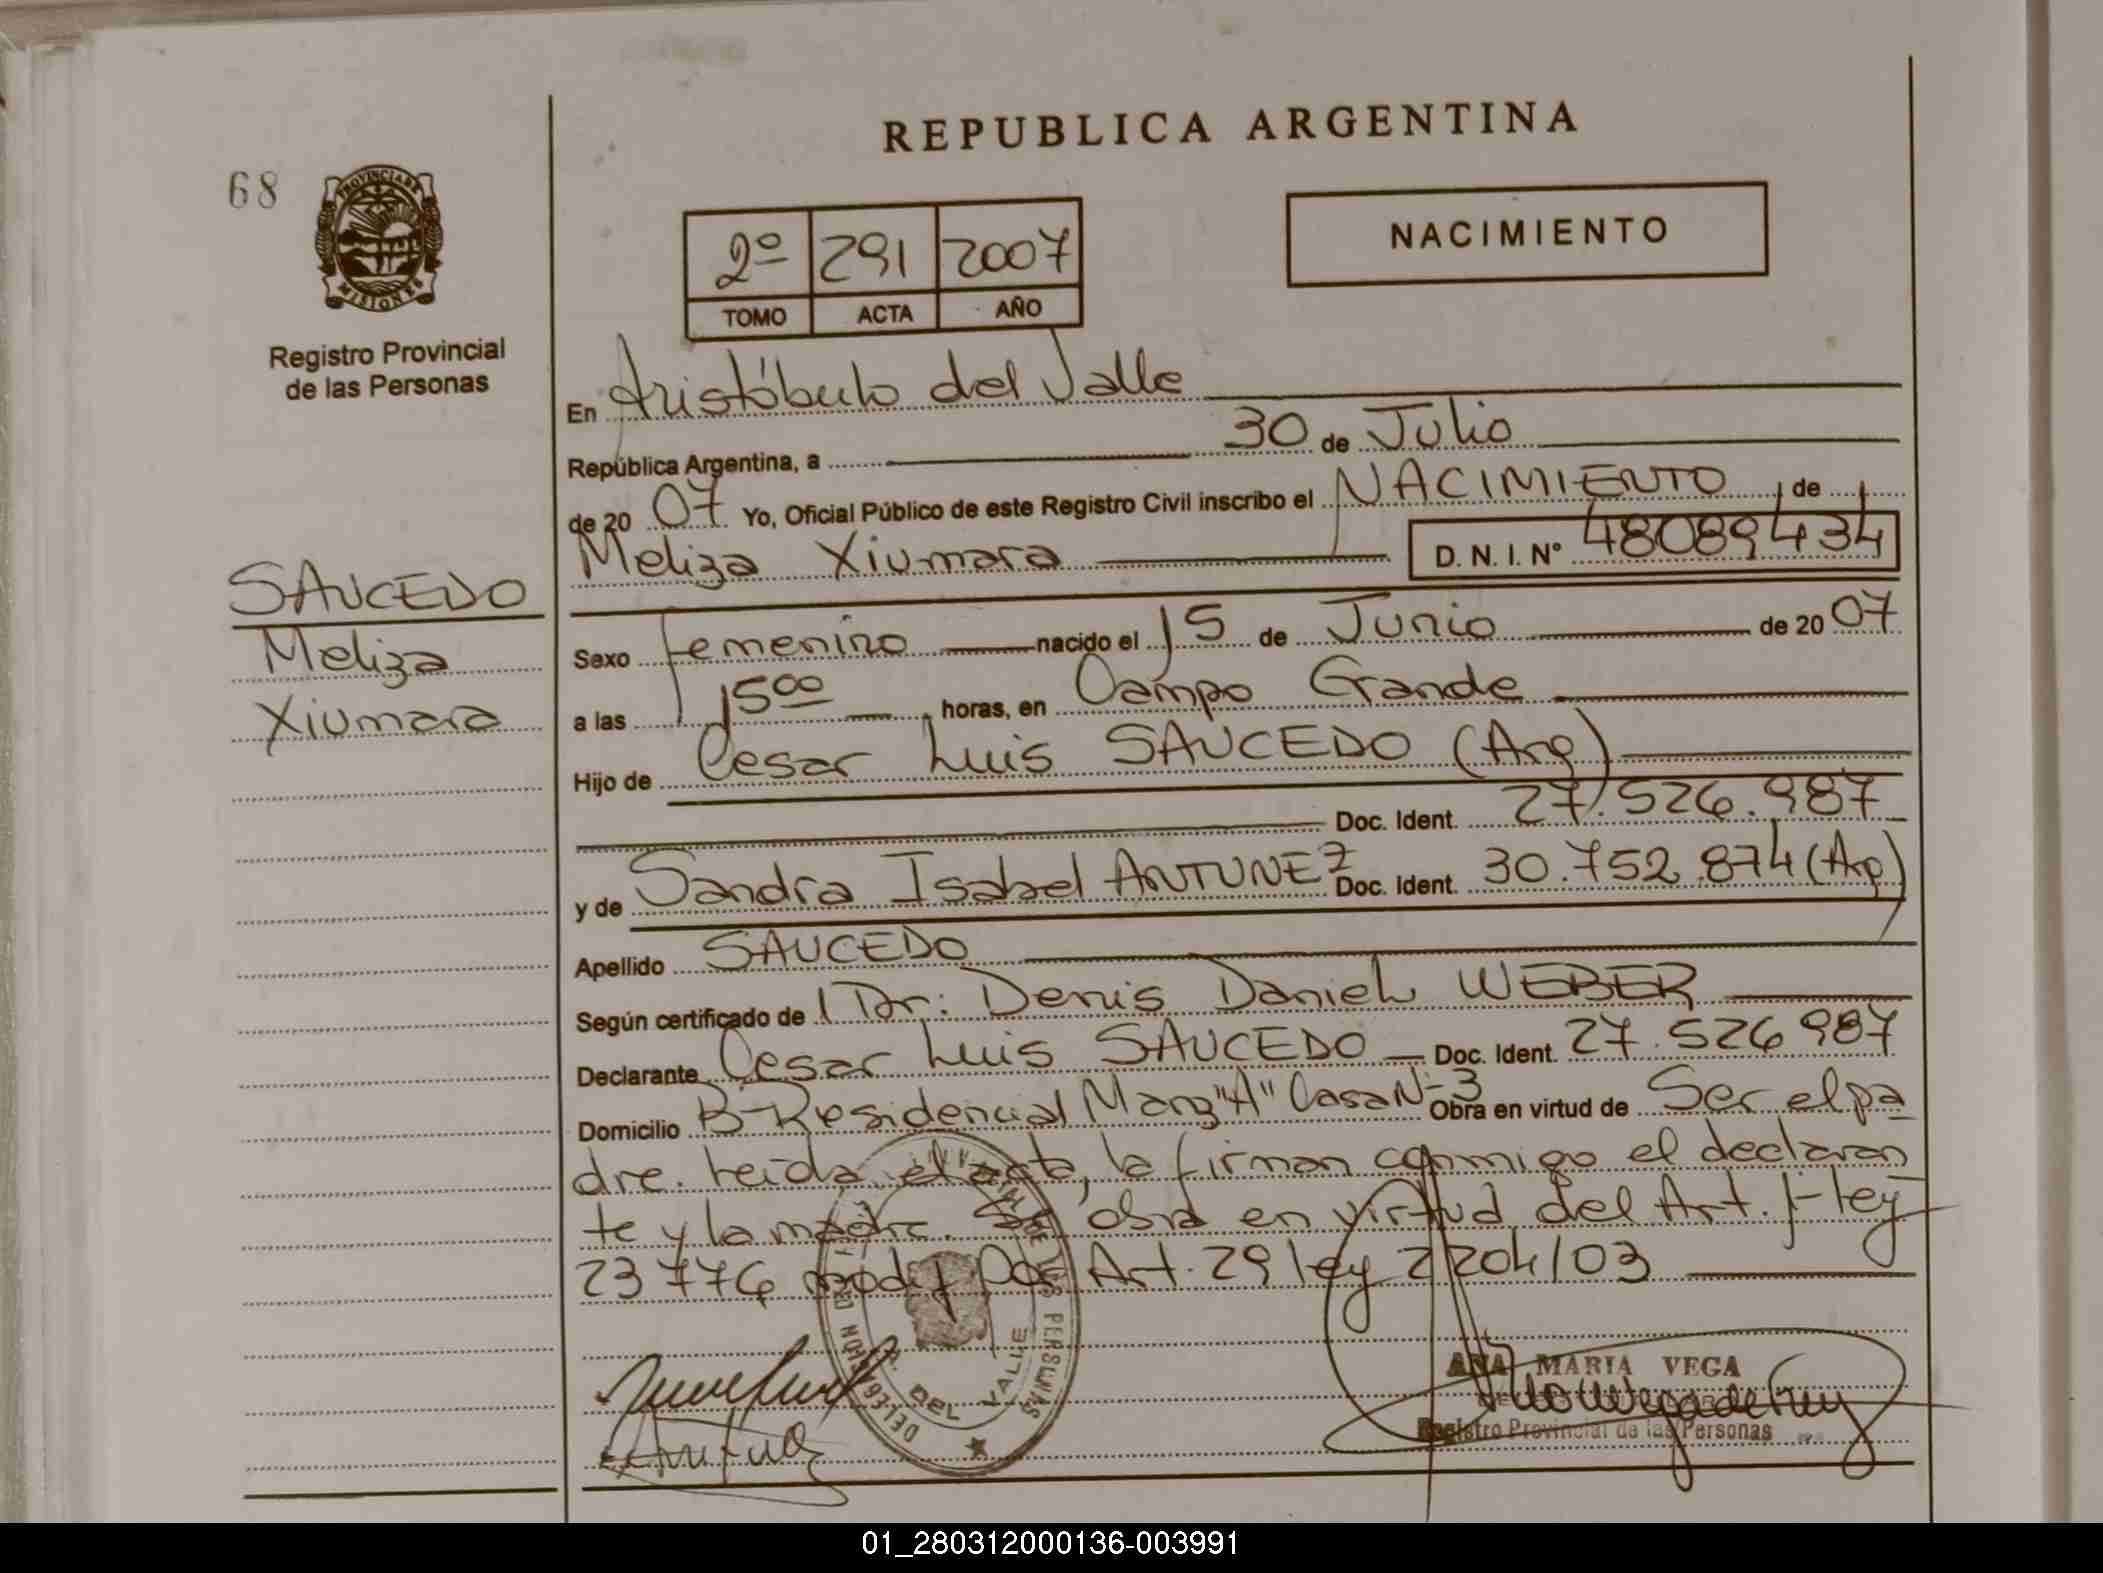 REPUBLICA ARGENTINA
68
PROVINCIA DE
MISIONES
Registro Provincial
de las Personas
2º 291 2007
TOMO ACTA AÑO
NACIMIENTO
En Aristóbulo del Valle
República Argentina, a 30 de Julio
de 20 07 Yo, Oficial Público de este Registro Civil inscribo el NACIMIENTO de
Meliza Xiumara D. N. I. Nº 48089434
SAUCEDO
Meliza
Xiumara
Sexo femenino nacido el 15 de Junio de 20 07
a las 15 00 horas, en Campo Grande
Hijo de Cesar Luis SAUCEDO (Arg)
Doc. Ident. 27.526.987
y de Sandra Isabel ANTUNEZ Doc. Ident. 30.752.874 (Arg)
Apellido SAUCEDO
Según certificado de l Dr: Denis Daniel WEBER
Declarante Cesar Luis SAUCEDO Doc. Ident. 27.526987
Domicilio Bº Residencial Manz "A" Casa Nº 3 Obra en virtud de Ser el pa
dre. Leída el acta, la firman conmigo el declaran
te y la madre. Se obra en virtud del Art. 1º Ley
23776 modif por Art. 29 ley 2204/03
DE LAS PERSONAS
DELEGACION
DEL VALLE
ANA MARIA VEGA
Registro Provincial de las Personas
01_280312000136-003991